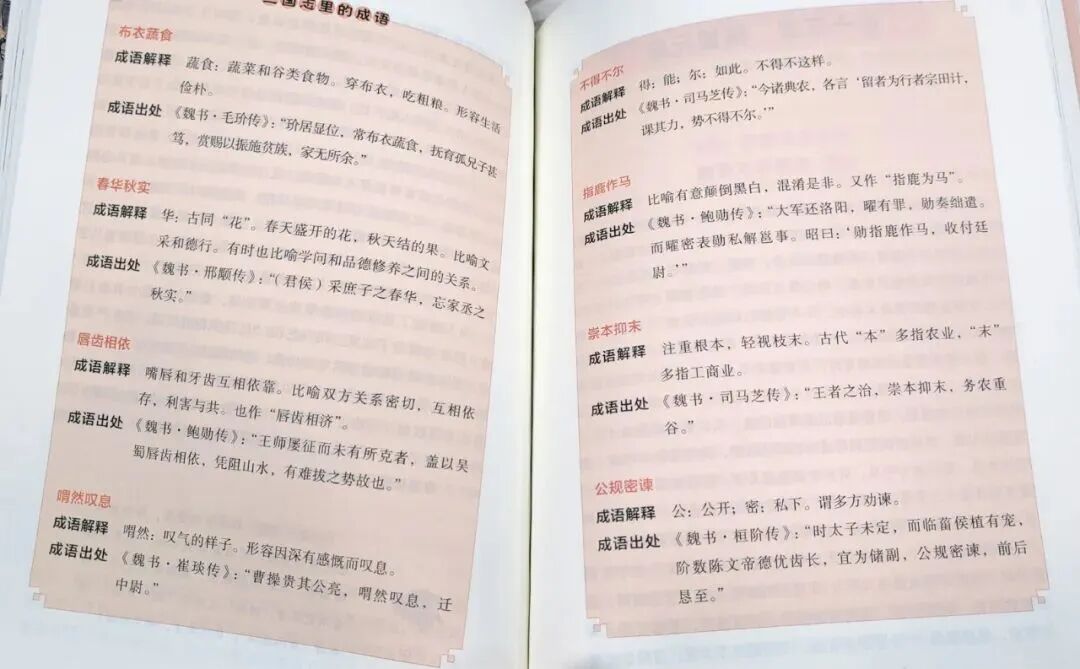 三国志里的成语
布衣蔬食
成语解释 蔬食：蔬菜和谷类食物。穿布衣，吃粗粮。形容生活
俭朴。
成语出处 《魏书·毛玠传》：“玠居显位，常布衣蔬食，抚育孤兄子甚
笃，赏赐以振施贫族，家无所余。”
春华秋实
成语解释 华：古同“花”。春天盛开的花，秋天结的果。比喻文
采和德行。有时也比喻学问和品德修养之间的关系。
成语出处 《魏书·邢颙传》：“（君侯）采庶子之春华，忘家丞之
秋实。”
唇齿相依
成语解释 嘴唇和牙齿互相依靠。比喻双方关系密切，互相依
存，利害与共。也作“唇齿相济”。
成语出处 《魏书·鲍勋传》：“王师屡征而未有所克者，盖以吴
蜀唇齿相依，凭阻山水，有难拔之势故也。”
喟然叹息
成语解释 喟然：叹气的样子。形容因深有感慨而叹息。
成语出处 《魏书·崔琰传》：“曹操贵其公亮，喟然叹息，迁
中尉。”
不得不尔
成语解释 得：能；尔：如此。不得不这样。
成语出处 《魏书·司马芝传》：“今诸典农，各言‘留者为行者宗田计，
课其力，势不得不尔。’”
指鹿作马
成语解释 比喻有意颠倒黑白，混淆是非。又作“指鹿为马”。
成语出处 《魏书·鲍勋传》：“大军还洛阳，曜有罪，勋奏绌遣。
而曜密表勋私解邕事。昭曰：‘勋指鹿作马，收付廷
尉。’”
崇本抑末
成语解释 注重根本，轻视枝末。古代“本”多指农业，“末”
多指工商业。
成语出处 《魏书·司马芝传》：“王者之治，崇本抑末，务农重
谷。”
公规密谏
成语解释 公：公开；密：私下。谓多方劝谏。
成语出处 《魏书·桓阶传》：“时太子未定，而临菑侯植有宠，
阶数陈文帝德优齿长，宜为储副，公规密谏，前后
恳至。”